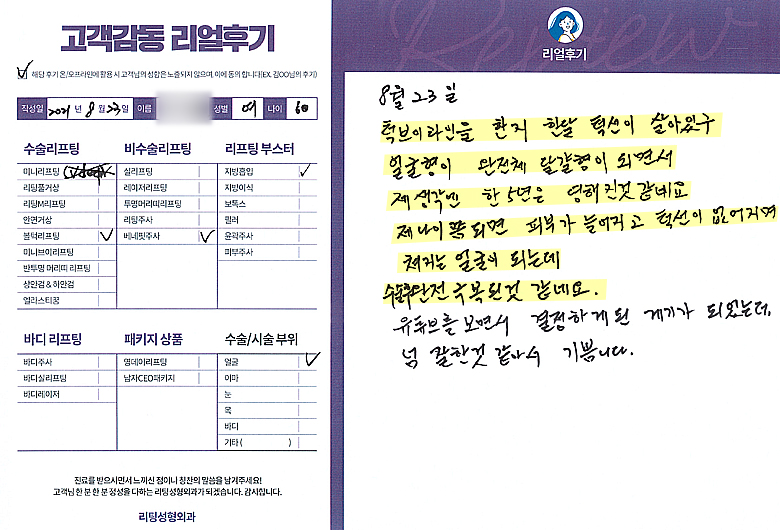 고객감동 리얼후기
해당 후기 온/오프라인에 활용 시 고객님의 성함은 노출되지 않으며, 이에 동의 합니다(EX. 김OO님의 후기)
작성일 2021 년 8 월 23 일 이름 성별 여 나이 60
수술리프팅 비수술리프팅 리프팅 부스터
미니리프팅 실리프팅 지방흡입 ✓
리팅풀거상 레이저리프팅 지방이식
리팅M리프팅 투명머리띠리프팅 보톡스
안면거상 리팅주사 필러
블턱리프팅 ✓ 베네핏주사 ✓ 윤곽주사
미니브이리프팅 피부주사
반투명 머리띠 리프팅
상안검 & 하안검
엘라스티꿈
바디 리프팅 패키지 상품 수술/시술 부위
바디주사 영데이리프팅 얼굴 ✓
바디실리프팅 남자CEO패키지 이마
바디레이저 눈
목
바디
기타 ( )
진료를 받으시면서 느끼신 점이나 칭찬의 말씀을 남겨주세요!
고객님 한 분 한 분 정성을 다하는 리팅성형외과가 되겠습니다. 감사합니다.
리팅성형외과
Review
리얼후기
8월 23일
턱브이라인을 한지 한달 턱선이 살아있구
얼굴형이 완전체 달걀형이 되면서
제 생각엔 한 5년은 영해진것 같네요
제 나이쯤 되면 피부가 늘어지고 턱선이 없어지면
쳐지는 얼굴이 되는데
수술후 완전 극복된것 같네요.
유튜브를 보면서 결정하게된 계기가 되었는데,
넘 잘한것 같아서 기쁩니다.